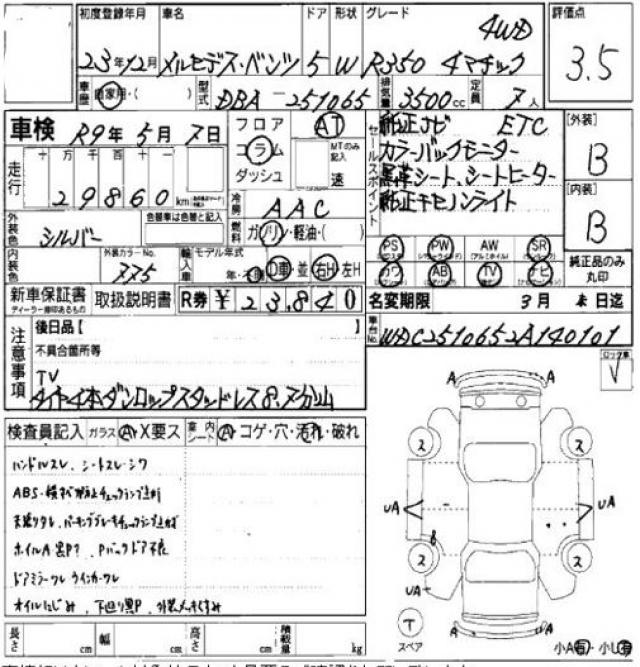 初度登録年月 車名 ドア 形状 グレード 評価点
4WD
23年12月 メルセデス・ベンツ 5 W R350 4マチック 3.5
車歴 自家用・( ) 型式 DBA-251065 排気量 3500cc 定員 7人
車検 R9年5月7日
フロア
コラム
ダッシュ
AT
MTのみ記入
速
セールスポイント
純正ナビ ETC
カラーバックモニター
黒革シート、シートヒーター
純正キセノンライト
[外装]
B
[内装]
B
走行 十 万 千 百 十 一
29860 km
冷房 AAC
燃料 ガソリン・軽油・( )
外装色 シルバー 色替車は色替と記入
内装色 外装カラーNo. 775
輸入車 モデル年式
年・不明 D車 並 右H 左H
PS PW AW SR
カワ AB TV ナビ
純正品のみ丸印
新車保証書 取扱説明書 R券 ¥23,840
ディーラー捺印あるもの
名変期限 3月末日迄
車台No. WDC2510652A140101
注意事項
後日品【
不具合箇所等
TV
タイヤ4本ダンロップスタッドレス8、7分山
検査員記入 ガラス A・X要ス 室内シート A・コゲ・穴・汚れ・破れ
ハンドルスレ、シートスレ・シワ
ドアミラーワレ ウインカーワレ
オイルにじみ、下廻り黒P、外装メッキくすみ
A A
ス ス
UA UA
ス ス
UA
A A
T
スペア
小A有・小U有
長さ cm 幅 cm 高さ cm 積載量 kg